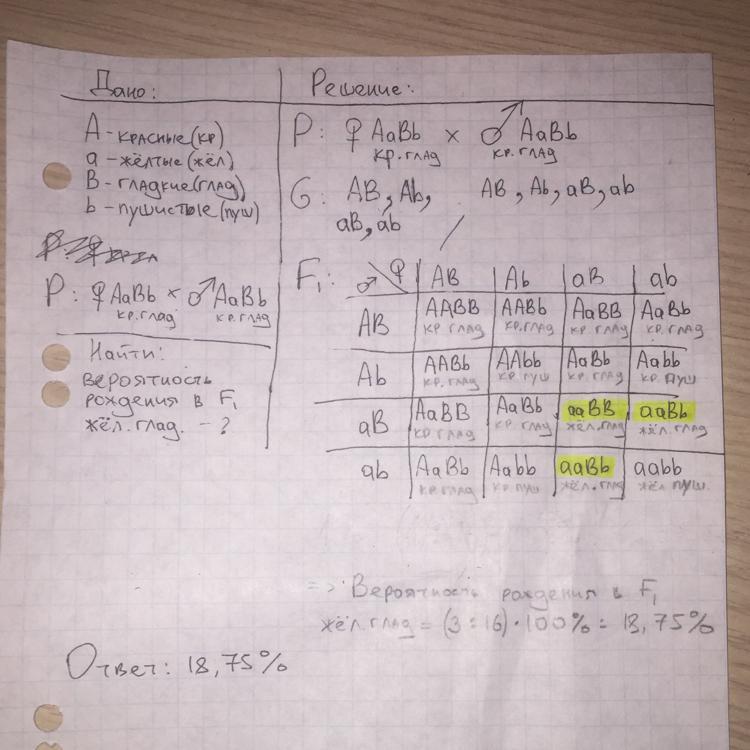 Дано:
А - красные(кр)
а - жёлтые(жёл)
В - гладкие(глад)
b - пушистые(пуш)
P: ♀ AaBb × ♂ AaBb
кр.глад кр.глад
Найти:
вероятность
рождения в F₁
жёл.глад. - ?
Решение:
P: ♀ AaBb × ♂ AaBb
кр.глад кр.глад
G: AB, Ab, AB, Ab, aB, ab
aB, ab
F₁: ♂ \ ♀ AB Ab aB ab
AB AABB AABb AaBB AaBb
кр глад кр.глад кр глад кр.глад
Ab AABb AAbb AaBb Aabb
кр глад кр пуш кр.глад кр пуш
aB AaBB AaBb aaBB aaBb
кр глад кр глад жёл.глад жёл.глад
ab AaBb Aabb aaBb aabb
кр глад кр пуш жёл.глад жёл пуш.
=> Вероятность рождения в F₁
жёл.глад = (3:16)·100% = 18,75%
Ответ: 18,75%